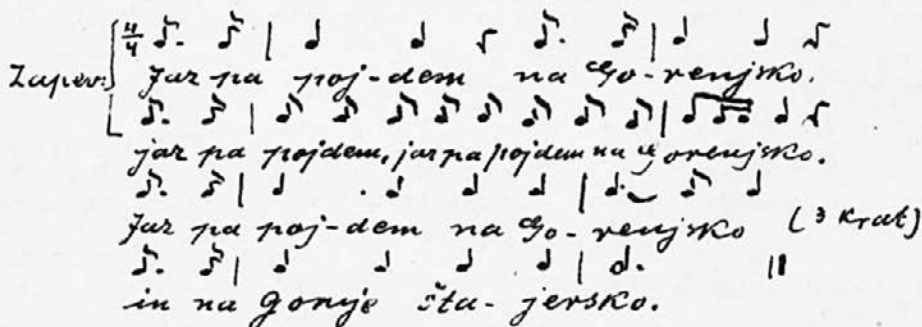 Zapev: 4/4
Jaz pa poj-dem na Go-renjsko.
jaz pa pojdem, jaz pa pojdem na Gorenjsko.
Jaz pa poj-dem na Go-renjsko (3 krat)
in na Gornje Šta-jersko.